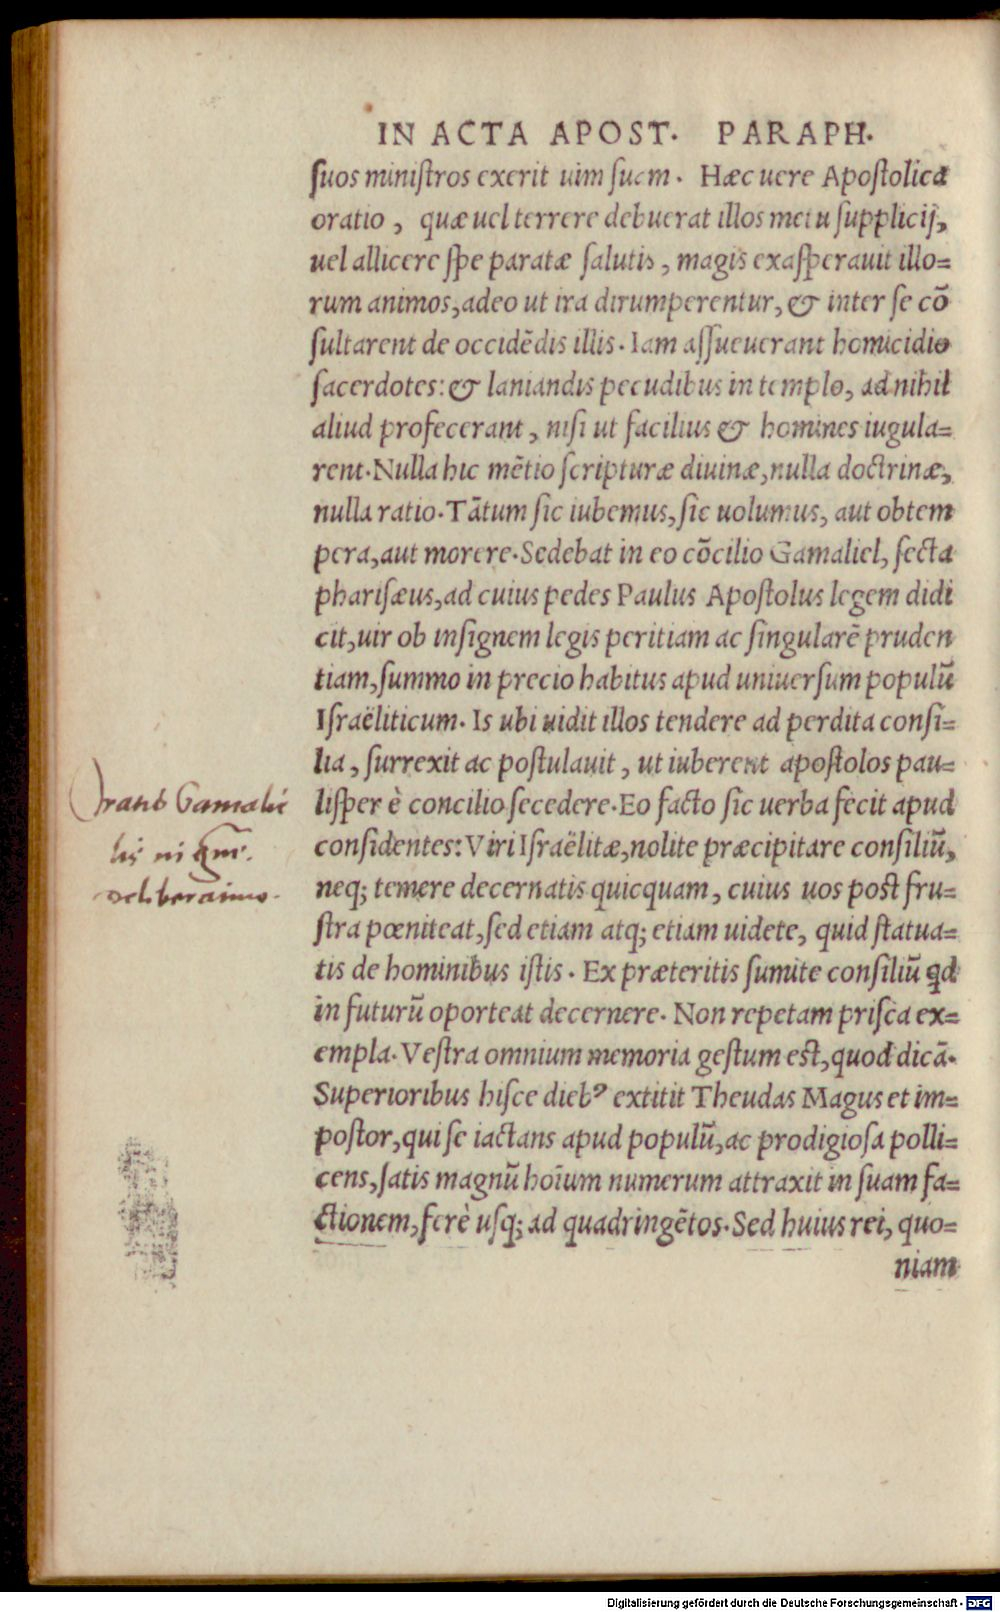 IN ACTA APOST. PARAPH.
suos ministros exerit uim suam. Hæc uere Apostolica
oratio, quæ uel terrere debuerat illos metu supplicij,
uel allicere spe paratæ salutis, magis exasperauit illo=
rum animos, adeo ut ira dirumperentur, & inter se cō
sultarent de occidēdis illis. Iam assueuerant homicidio
sacerdotes: & laniandis pecudibus in templo, ad nihil
aliud profecerant, nisi ut facilius & homines iugula=
rent. Nulla hic mētio scripturæ diuinæ, nulla doctrinæ,
nulla ratio. Tātum sic iubemus, sic uolumus, aut obtem
pera, aut morere. Sedebat in eo cōcilio Gamaliel, secta
pharisæus, ad cuius pedes Paulus Apostolus legem didi
cit, uir ob insignem legis peritiam ac singularē pruden
tiam, summo in precio habitus apud uniuersum populū
Israëliticum. Is ubi uidit illos tendere ad perdita consi=
lia, surrexit ac postulauit, ut iuberent apostolos pau=
lisper è concilio secedere. Eo facto sic uerba fecit apud
considentes: Viri Israëlitæ, nolite præcipitare consiliū,
neq; temere decernatis quicquam, cuius uos post fru=
stra pœniteat, sed etiam atq; etiam uidete, quid statua=
tis de hominibus istis. Ex præteritis sumite consiliū qd
in futurū oporteat decernere. Non repetam prisca ex=
empla. Vestra omnium memoria gestum est, quod dicā.
Superioribus hisce dieb⁹ extitit Theudas Magus et im=
postor, qui se iactans apud populū, ac prodigiosa polli=
cens, satis magnū hoīum numerum attraxit in suam fa=
ctionem, ferè usq; ad quadringētos. Sed huius rei, quo=
niam
Oratio Gamalie
lis
Digitalisierung gefördert durch die Deutsche Forschungsgemeinschaft - DFG